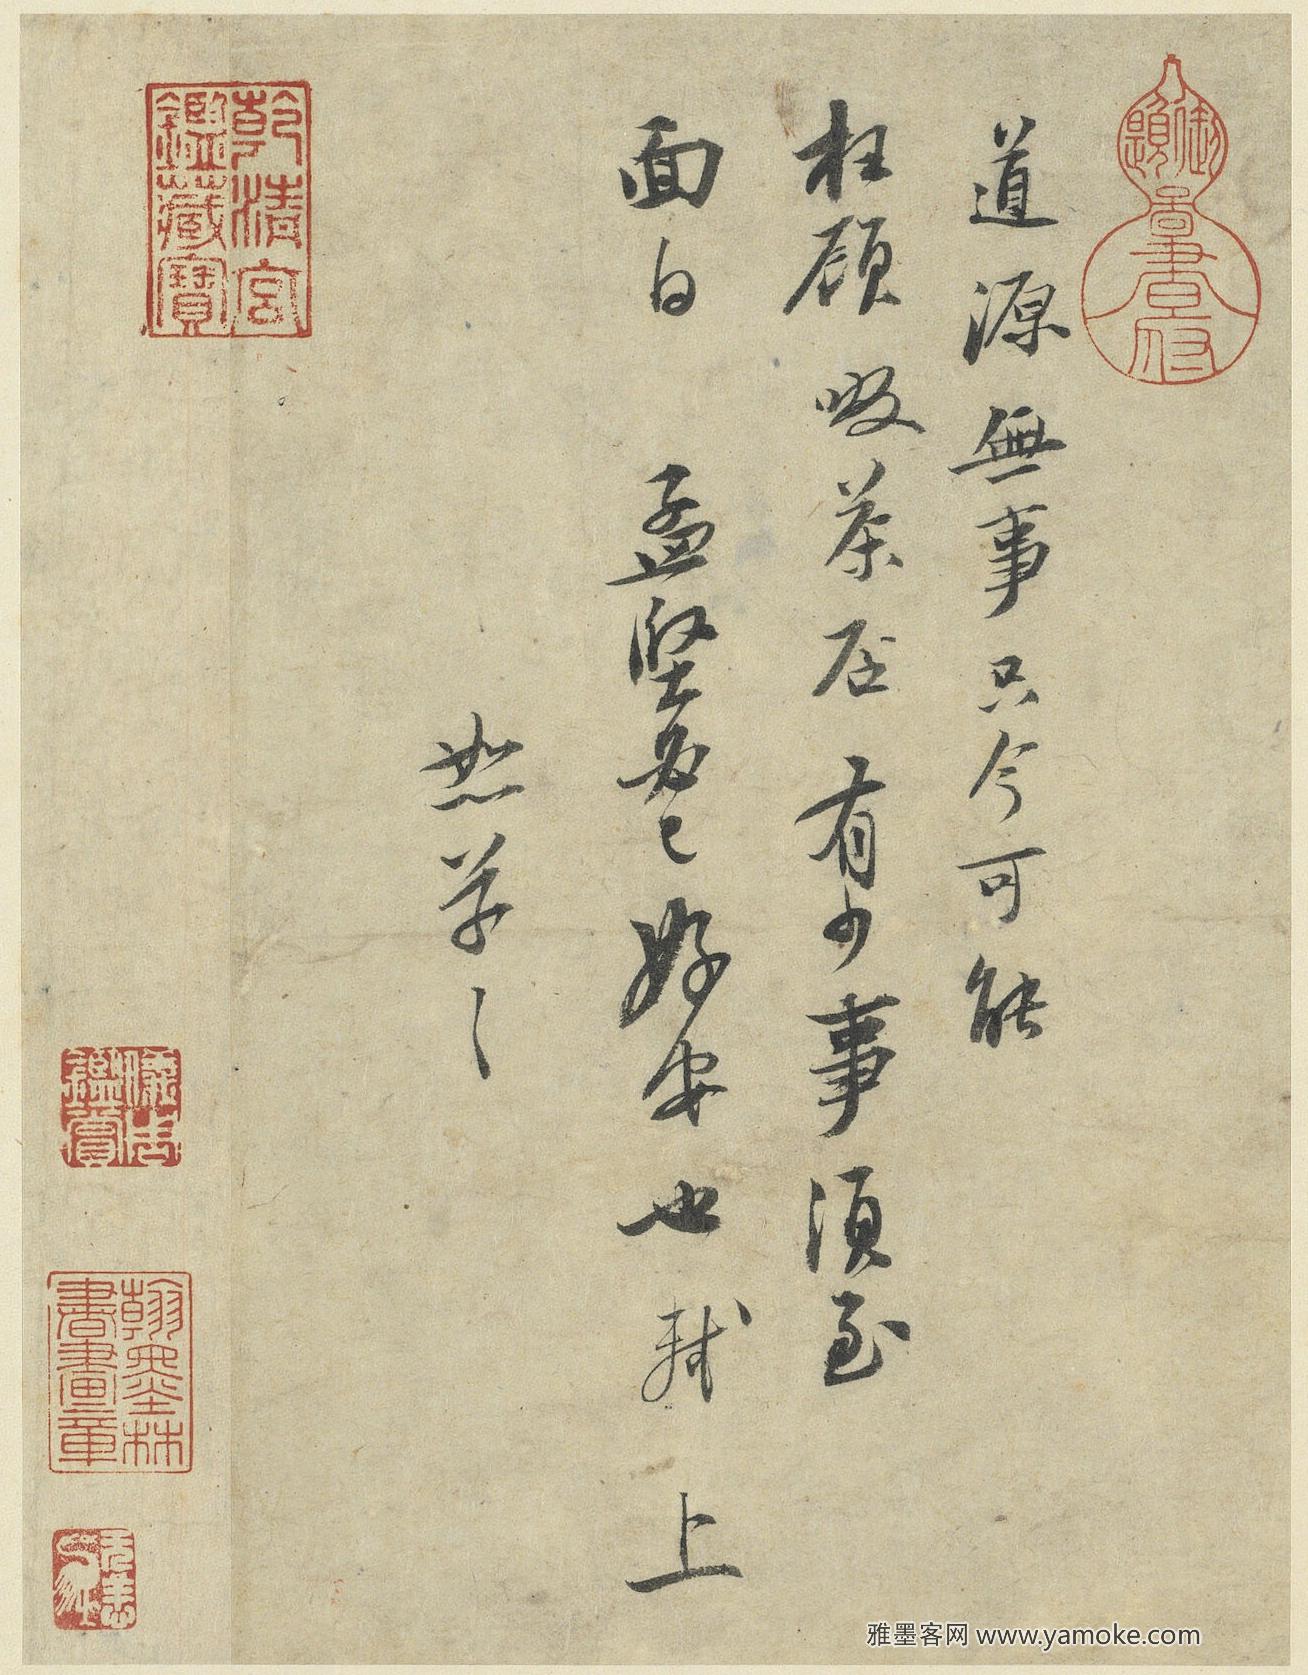 道源無事只今可能
枉顧啜茶否有少事須至
面白孟堅必已好安也軾上
恕草草
御題
圖書府
乾清宮
鑑藏寶
儀周
鑑賞
翰墨林
書畫章
雅墨客网 www.yamoke.com